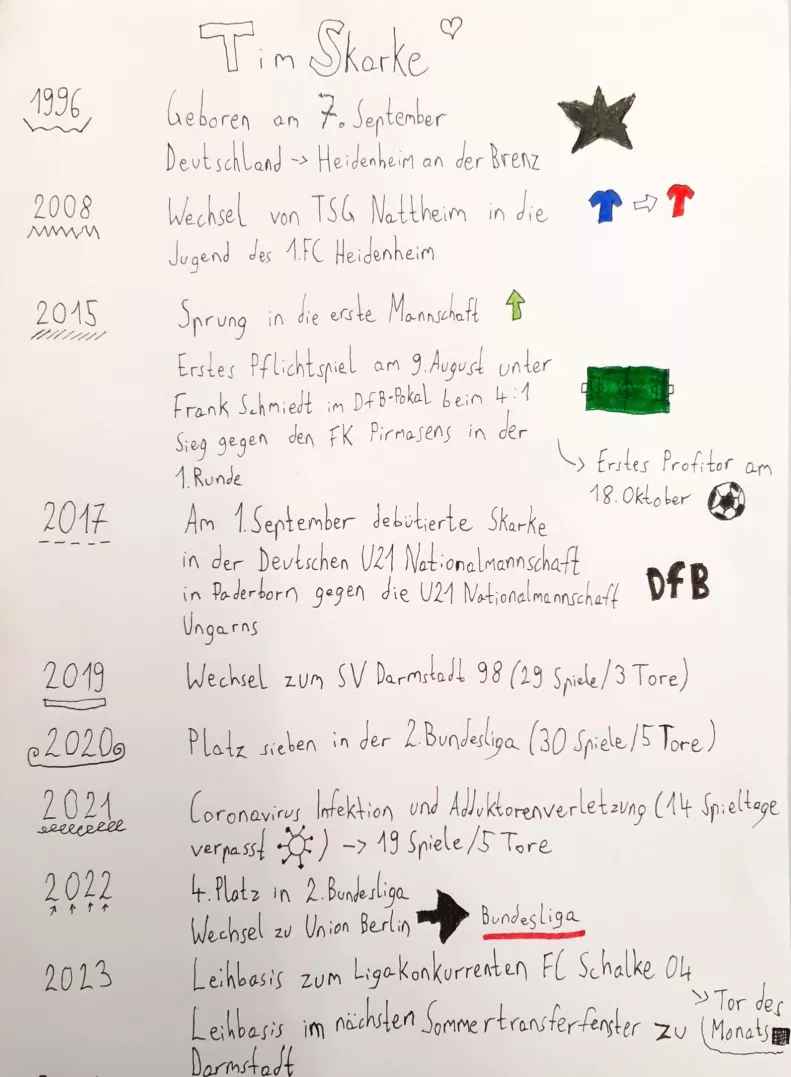 Tim Skarke
1996
Geboren am 7. September
Deutschland -> Heidenheim an der Brenz
2008
Wechsel von TSG Nattheim in die
Jugend des 1.FC Heidenheim
2015
Sprung in die erste Mannschaft
Erstes Pflichtspiel am 9. August unter
Frank Schmiedt im DfB-Pokal beim 4:1
Sieg gegen den FK Pirmasens in der
1. Runde
Erstes Profitor am
18. Oktober
2017
Am 1. September debütierte Skarke
in der Deutschen U21 Nationalmannschaft
in Paderborn gegen die U21 Nationalmannschaft
Ungarns
DfB
2019
Wechsel zum SV Darmstadt 98 (29 Spiele/3 Tore)
2020
Platz sieben in der 2. Bundesliga (30 Spiele/5 Tore)
2021
Coronavirus Infektion und Adduktorenverletzung (14 Spieltage
verpasst) -> 19 Spiele/5 Tore
2022
4. Platz in 2. Bundesliga
Wechsel zu Union Berlin
Bundesliga
2023
Leihbasis zum Ligakonkurrenten FC Schalke 04
Tor des
Monats
Leihbasis im nächsten Sommertransferfenster zu
Darmstadt